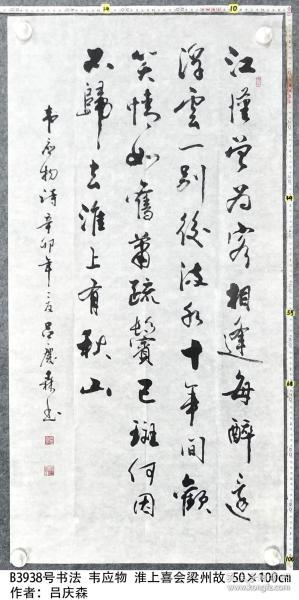 江漢曾为客相逢每醉還
浮雲一别後流水十年间歡
笑情如舊蕭疏鬢已斑何因
不歸去淮上有秋山
韦应物诗辛卯年二月吕慶森书
B3938号书法 韦应物 淮上喜会梁州故 50×100cm
作者：吕庆森